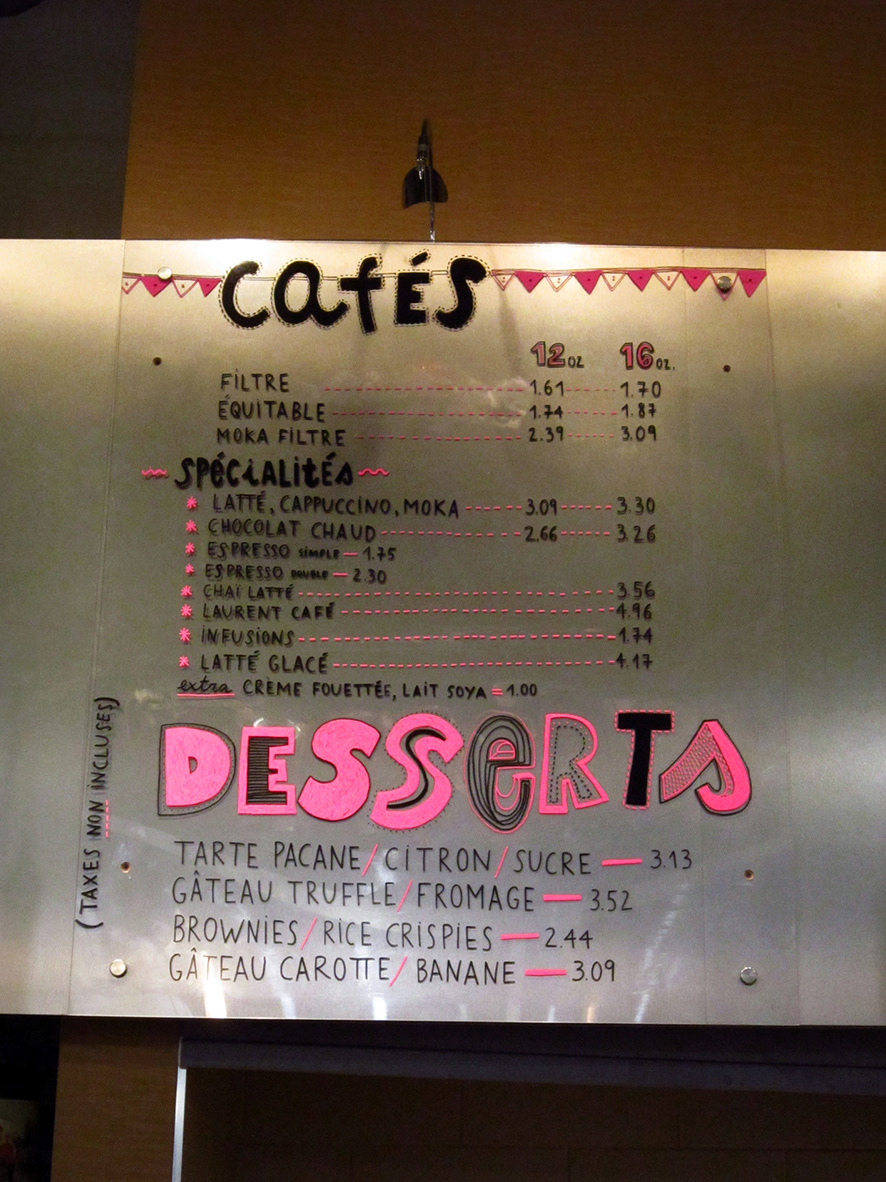 cafÉS
12 oz 16 oz.
FiLTRE 1.61 1.70
ÉQUITABLE 1.74 1.87
MOKA FILTRE 2.39 3.09
SPÉCiALitÉs
* LATTÉ, CAPPUCCINO, MOKA 3.09 3.30
* CHOCOLAT CHAUD 2.66 3.26
* ESPRESSO SiMPLE — 1.75
* ESPRESSO DOUBLE — 2.30
* CHAÏ LATTÉ 3.56
* LAURENT CAFÉ 4.96
* iNFUSIONS 1.74
* LATTÉ GLACÉ 4.17
extra CRÈME FOUETTÉE, LAIT SOYA = 1.00
(TAXES NON iNCLUSES)
DESSeRTS
TARTE PACANE/CiTRON/SUCRE — 3.13
GÂTEAU TRUFFLE/FROMAGE — 3.52
BROWNiES/RiCE CRISPIES — 2.44
GÂTEAU CAROTTE/BANANE — 3.09